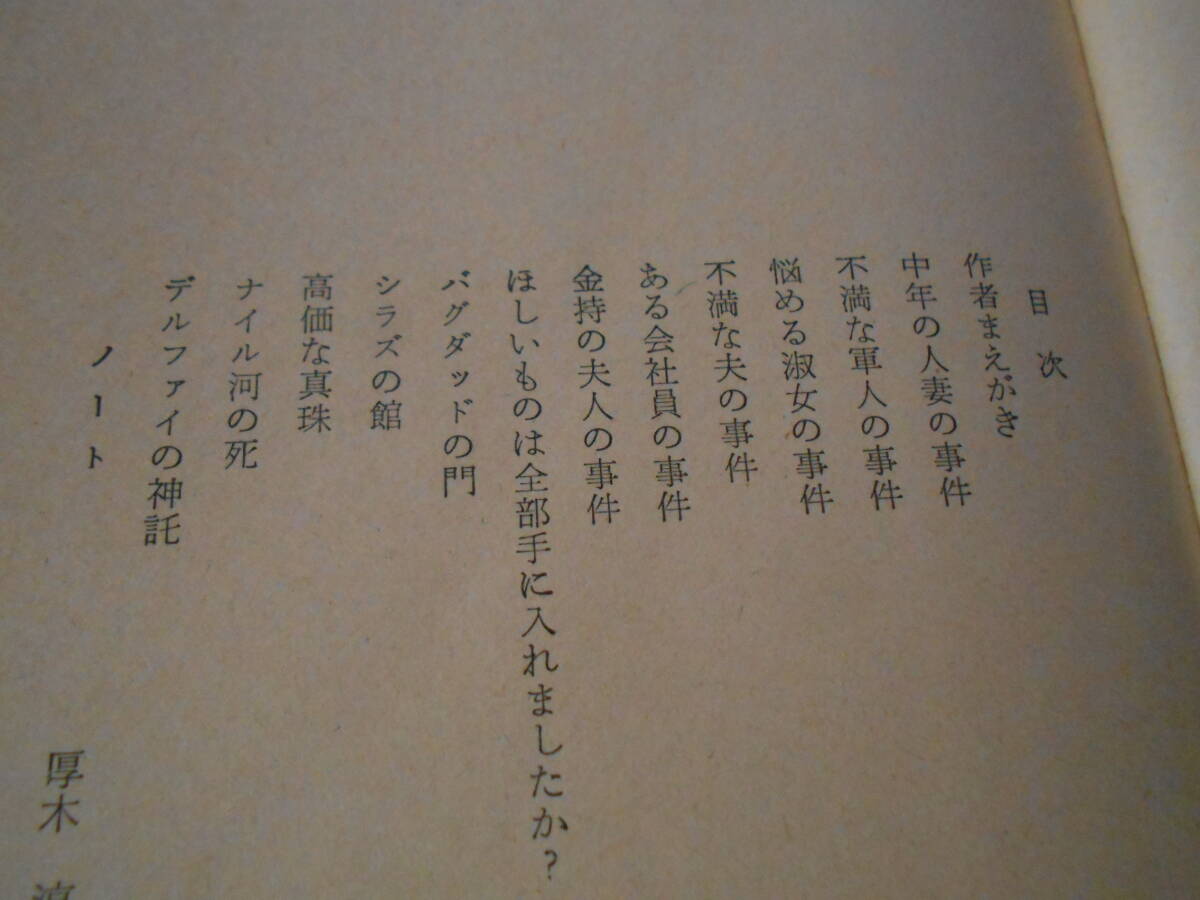 目次
作者まえがき
中年の人妻の事件
不満な軍人の事件
悩める淑女の事件
不満な夫の事件
ある会社員の事件
金持の夫人の事件
ほしいものは全部手に入れましたか?
バグダッドの門
シラズの館
高価な真珠
ナイル河の死
デルファイの神託
ノート
厚木